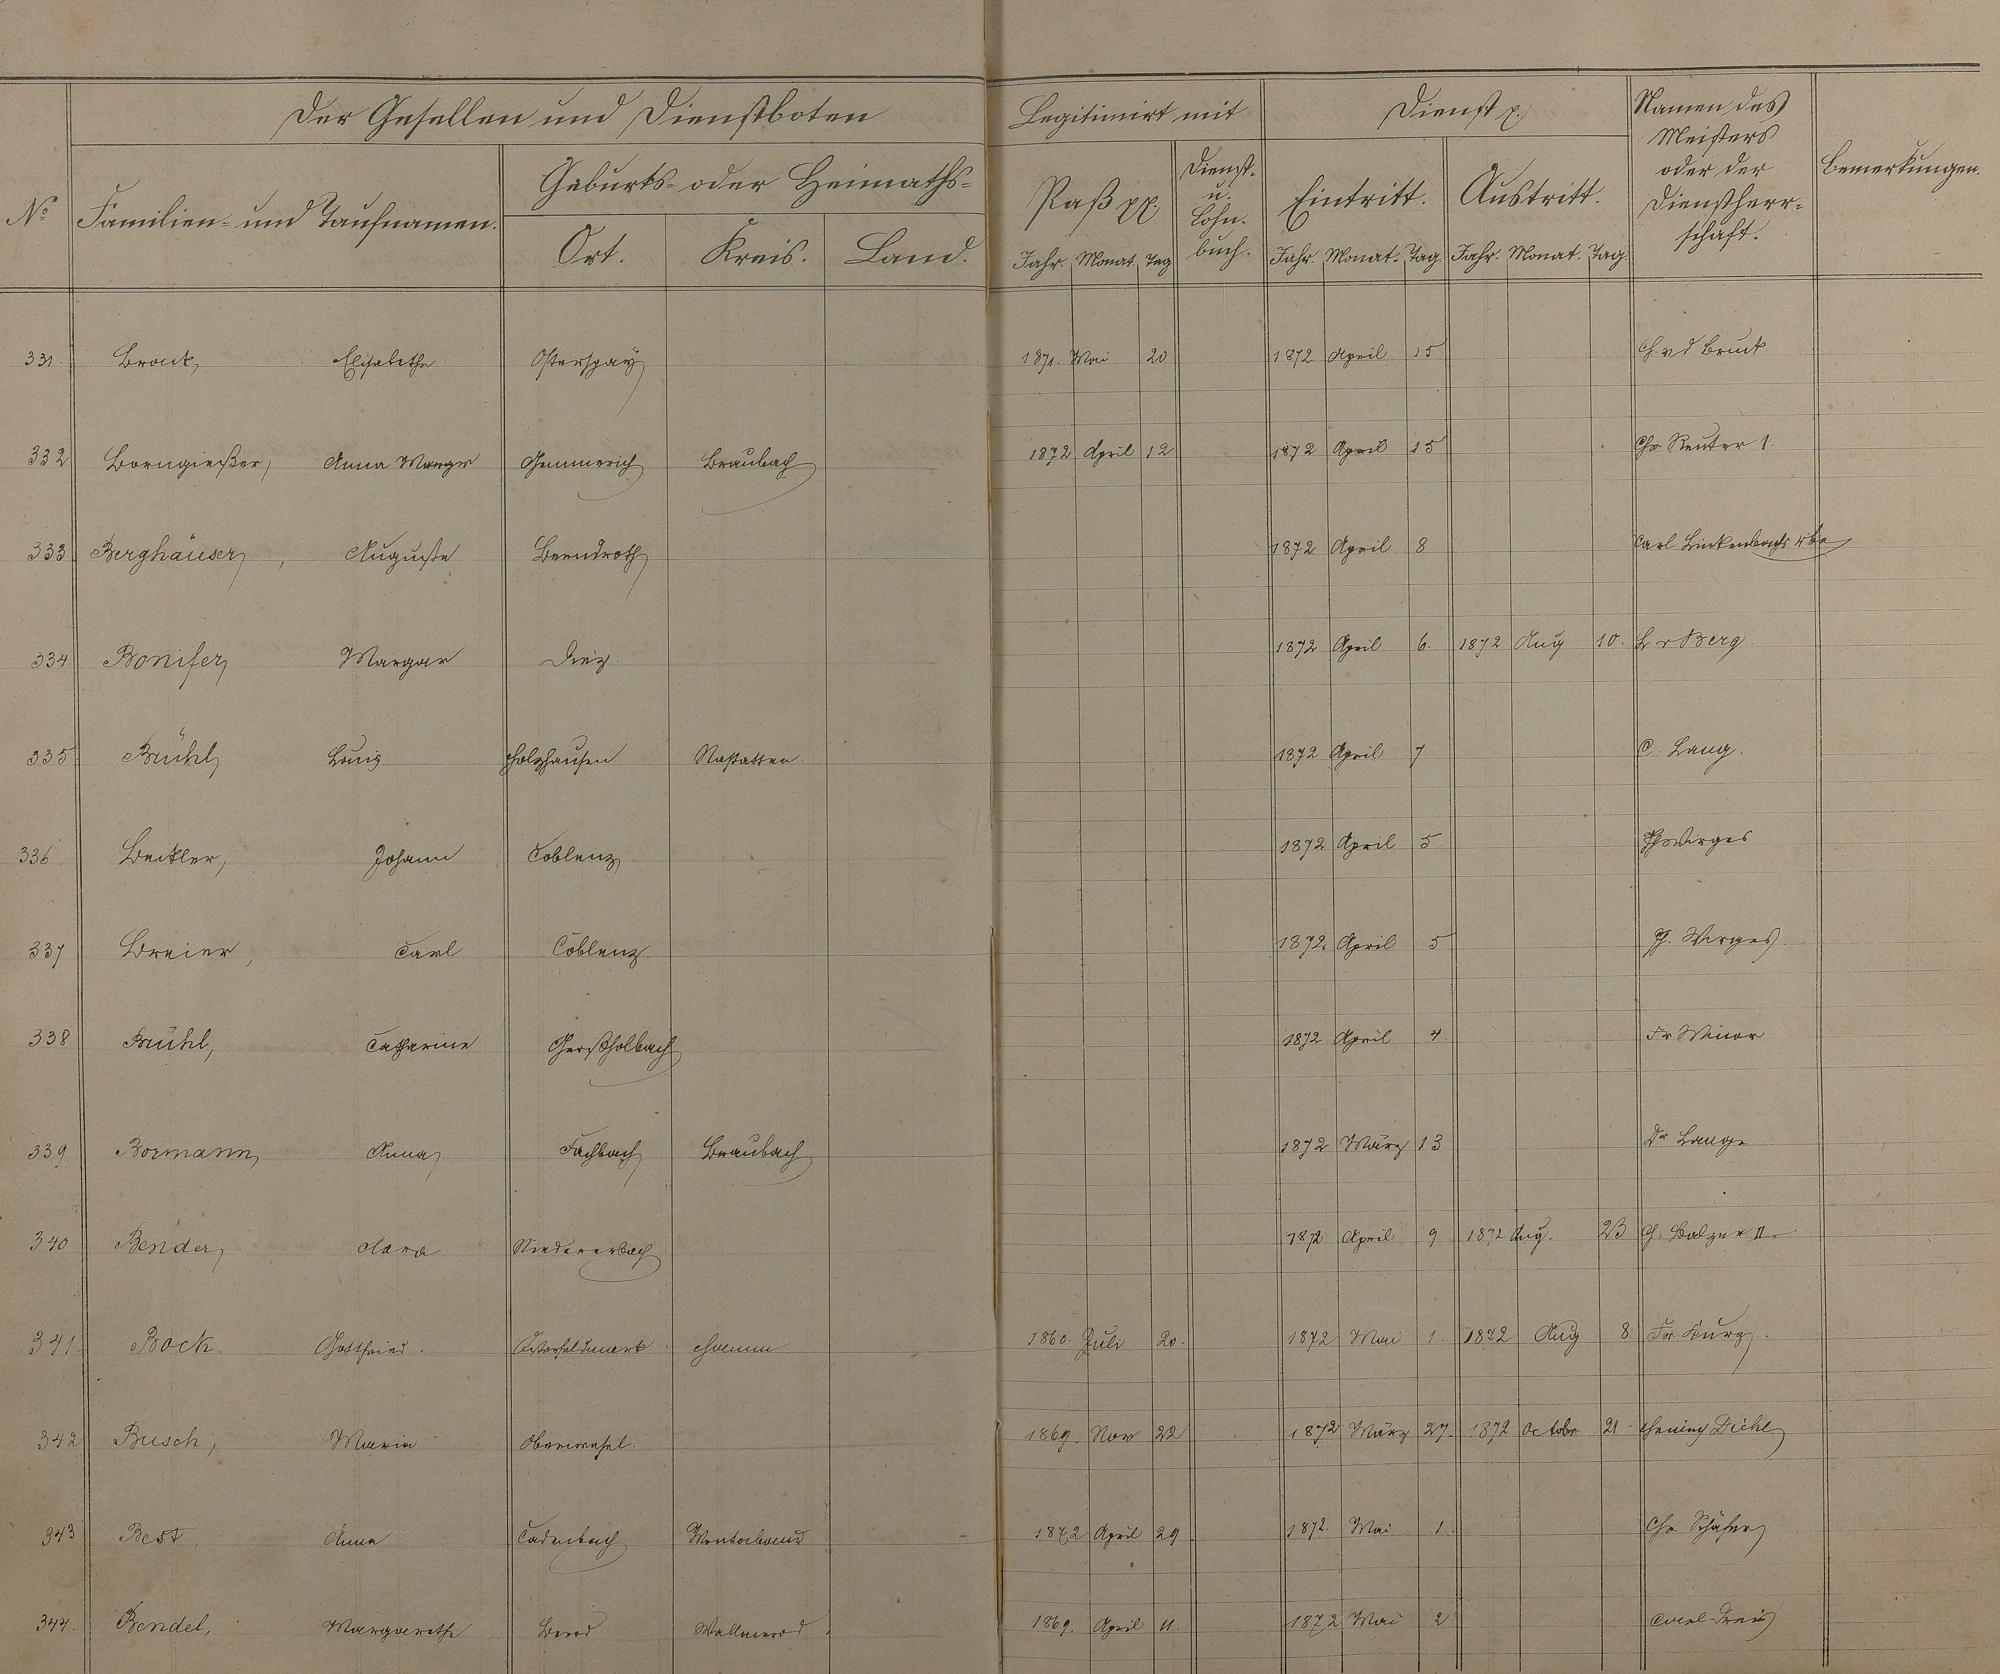 Der Gesellen und Dienstboten Legitimirt mit Dienst p. Namen des Meisters oder der Dienstherrschaft. Bemerkungen.
No Familien- und Taufnamen. Geburts- oder Heimaths- Paß pp. Dienst- u. Lohn-buch. Eintritt. Austritt.
Ort. Kreis. Land. Jahr. Monat. Tag Jahr. Monat. Tag. Jahr. Monat. Tag.
331. Elisabetha Osterspay 1871. Mai 20 1872 April 15 v d Bruck
332 Borngießer, Anna Margr Gemmerich Braubach 1872 April 12 1872 April 15 Chr Reuter 1.
333 Berghäuser, Auguste Berndroth 1872 April 8 Carl Linkenbachs Wbe
334 Bonifer, Margar Diez. 1872 April 6. 1872 Aug 10. v Berg.
335 Brühl, Louis Holzhausen Nastatten. 1872 April 7 C. Lang.
336 Johann Coblenz 1872 April 5 Ph Wirges
337 Breier, Carl Coblenz. 1872. April 5 Ph. Wirges.
338 Brühl, Catharine 1872 April 4. Fr Winor
339 Bormann, Anna Fachbach Braubach 1872 März 13 Dr Lange
340 Bender, Clara Niedererbach 1872 April 9 1872 Aug. 23 Balzer II.
341. Bock. Gottfried. Hamm 1860. Juli 20. 1872 Mai 1. 1872 Aug 8 Fr Kurz.
342 Busch, Maria Oberwesel. 1869. Nov 22 1872 März 27. 1872 Octobr 21 Heinrich Diehl
343 Best, Anna Cadenbach Montabaur 1872 April 29 1872. Mai 1. Chr Schäfer
344. Bendel, Margarethe Berod Wallmerod. 1869. April 11. 1872 Mai 2 Carl